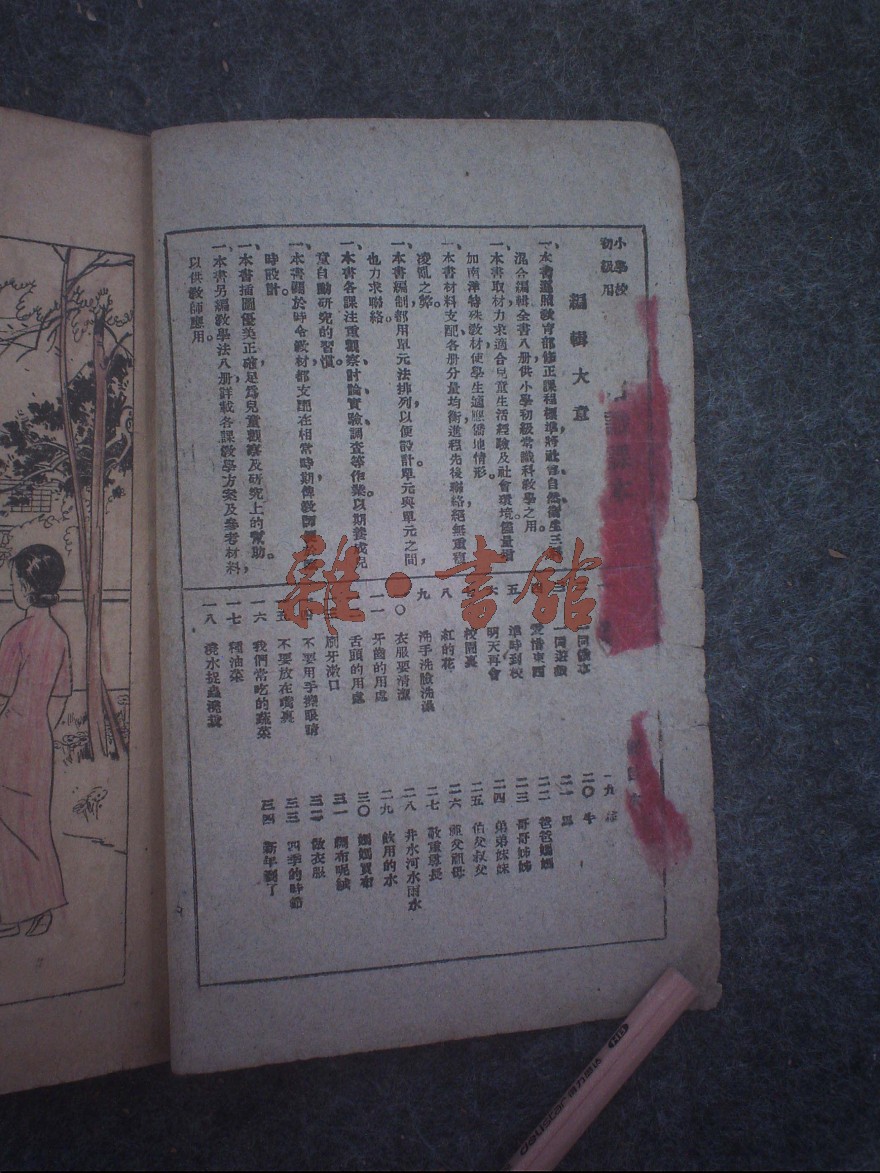 小學校
初級用
編輯大意
一、本書遵照教育部修正課程標準將社會、自然、衛生三
混合編輯全書八册供小學初級常識科教學之用。
一、本書取材力求適合兒童生活經驗及社會環境儘量增
加南洋特殊教材使學生適應僑地情形。
一、本書材料支配各册分量均衡進程先後聯絡絕無重複
凌亂之弊。
一、本書編制都用單元法排列以便設計單元與單元之間,
也力求聯絡。
一、本書各課注重觀察、討論、實驗、調查等作業以期養成兒
童自動研究的習慣。
一、本書關於時令教材都支配在相當時期使教師
時設計。
一、本書插圖優美正確足爲兒童觀察及研究上的幫助。
一、本書另編教學法八册詳載各課教學方案及參考材料,
以供教師應用。
一同做事
一同遊戲
愛惜東西
五 準時到校
六 明天再會
校園裏
八 紅的花
九 洗手洗臉洗澡
一〇 衣服要清潔
一一 牙齒的用處
舌頭的用處
刷牙漱口
不要用手擦眼睛
不要放在嘴裏
一六 我們常吃的蔬菜
一七 種油菜
一八 澆水捉蟲澆糞
一九
二〇 牛
二一
二二 爸爸媽媽
二三 哥哥姊姊
二四 弟弟妹妹
二五 伯父叔父
二六 祖父祖母
二七 敬重尊長
二八 井水河水雨水
二九 飲用的水
三〇 媽媽買布
三一 綢布呢絨
三二 做衣服
三三 四季的時節
三四 新年到了
雜·書館
HB